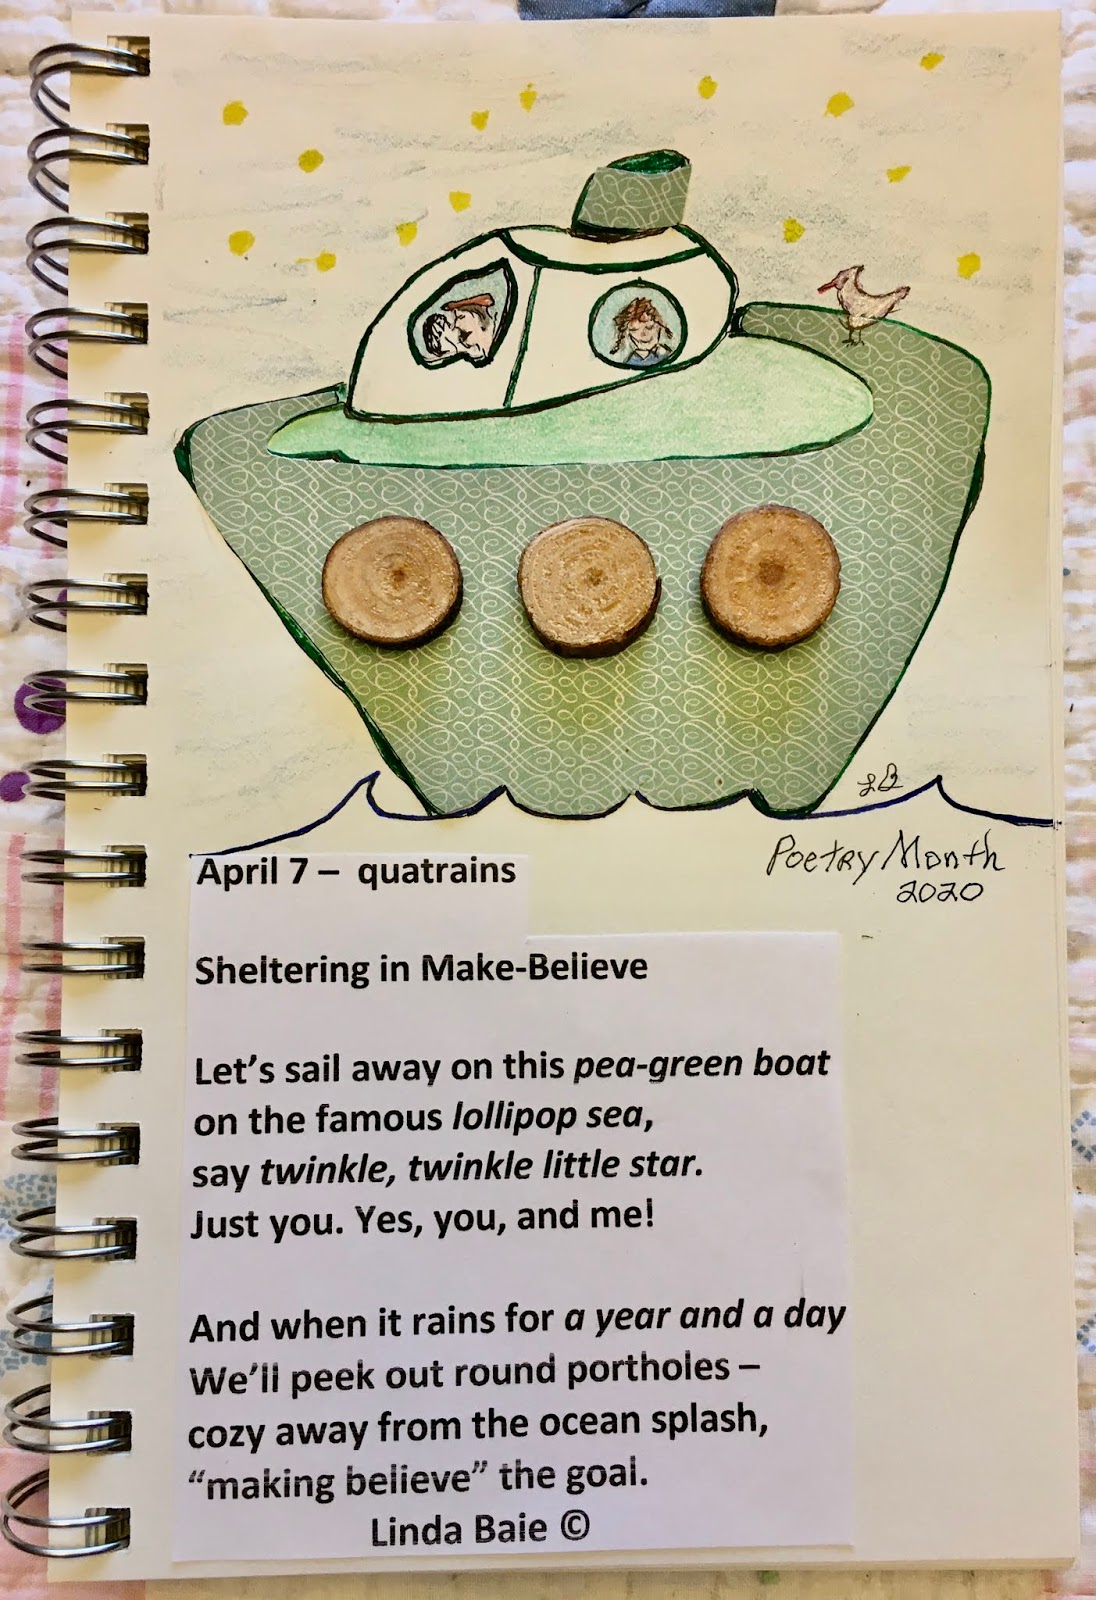 LB
Poetry Month
2020
April 7 – quatrains
Sheltering in Make-Believe
Let’s sail away on this pea-green boat
on the famous lollipop sea,
say twinkle, twinkle little star.
Just you. Yes, you, and me!
And when it rains for a year and a day
We’ll peek out round portholes –
cozy away from the ocean splash,
“making believe” the goal.
Linda Baie ©